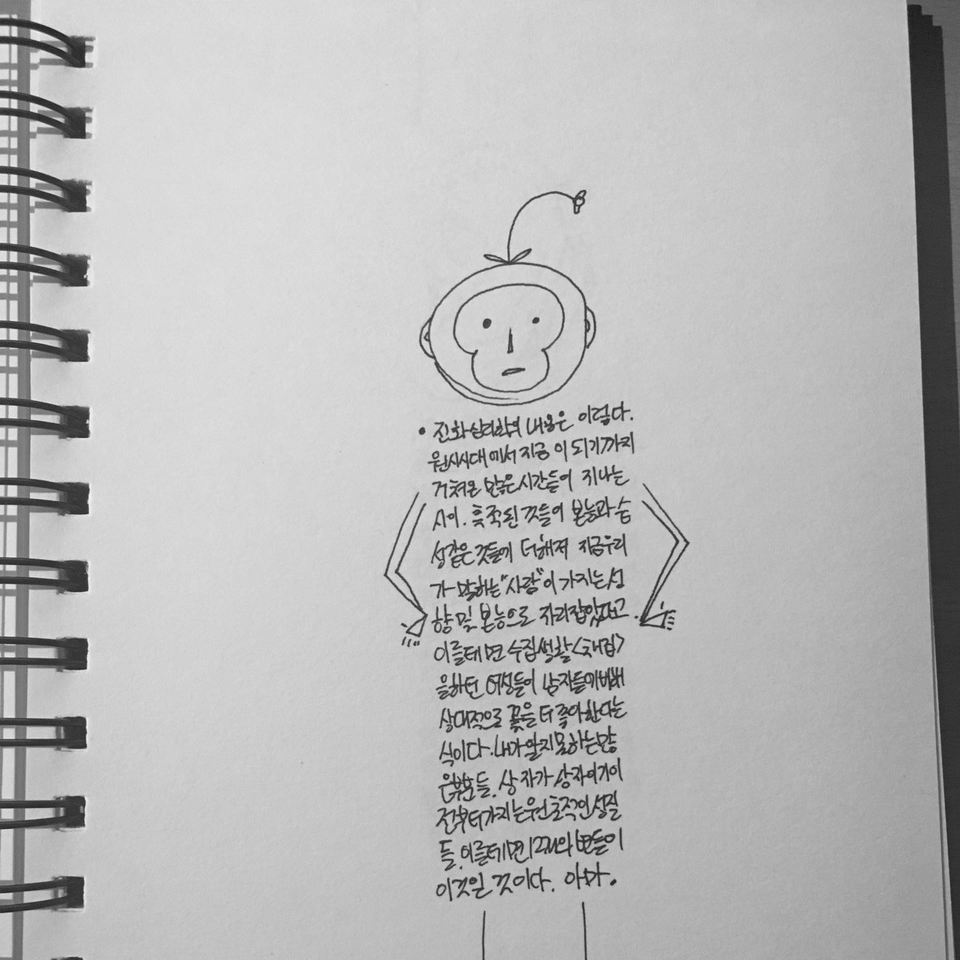 • 진화심리학의 내용은 이렇다.
원시시대에서 지금 이 되기까지
거쳐온 많은시간들이 지나는
사이. 축적된 것들이 본능과 습
성같은 것들에 더해져 지금우리
가 말하는 "사람"이 가지는 성
향 및 본능으로 자리잡았다고.
이를테면 수집생활<채집>
을하던 여성들이 남자들에비해
상대적으로 꽃을 더 좋아한다는
식이다. 내가 알지못하는 많
은부분들. 상자가 상자이기이
전부터가지는원초적인성질
들. 이를테면 12개의 변들이
이것일 것이다. 아마.